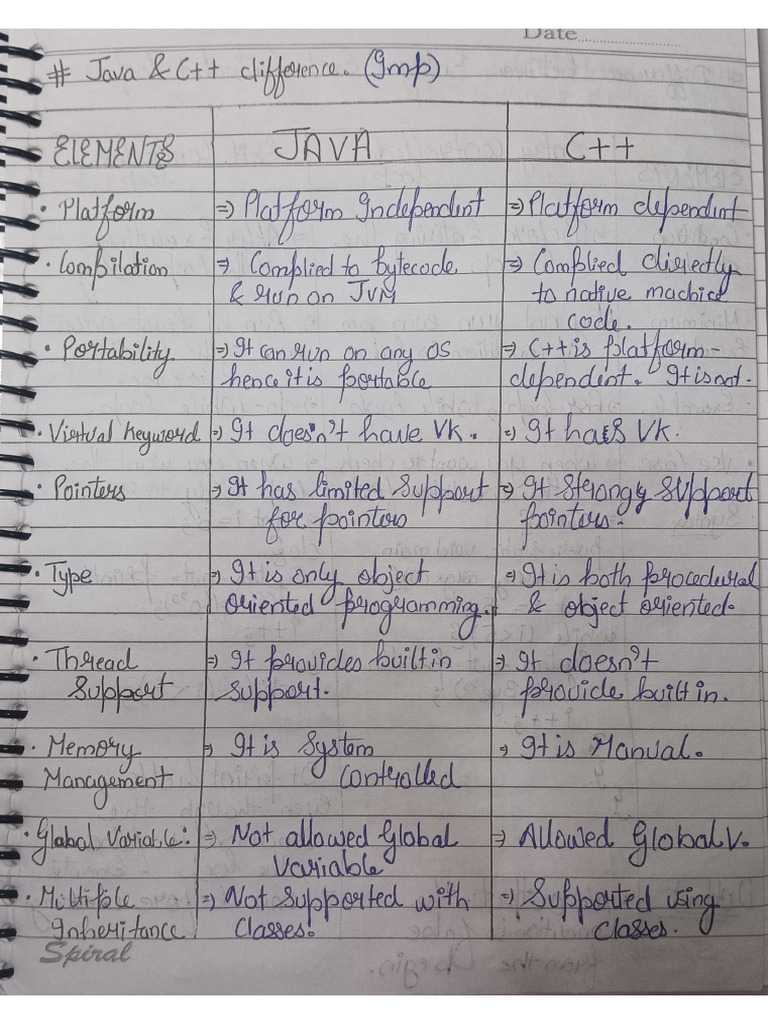 Date
# Java & C++ difference. (Imp)
ELEMENTS JAVA C++
• Platform ⇒ Platform Independent ⇒ Platform dependent
• Compilation ⇒ Complied to bytecode ⇒ Complied directly
& run on JVM to native machice
code.
• Portability ⇒ It can run on any OS ⇒ C++ is platform-
hence it is portable dependent. It is not.
• Virtual keyword ⇒ It doesn't have VK. ⇒ It has VK.
• Pointers ⇒ It has limited support ⇒ It strongly support
for pointers pointers.
• Type ⇒ It is only object ⇒ It is both procedural
oriented programming. & object oriented.
• Thread ⇒ It provides built in ⇒ It doesn't
Support support. provide built in.
• Memory ⇒ It is System ⇒ It is Manual.
Management controlled
• Global Variable: ⇒ Not allowed Global ⇒ Allowed Global V.
Variable
• Multiple ⇒ Not Supported with ⇒ Supported using
Inheritance Classes. Classes.
Spiral